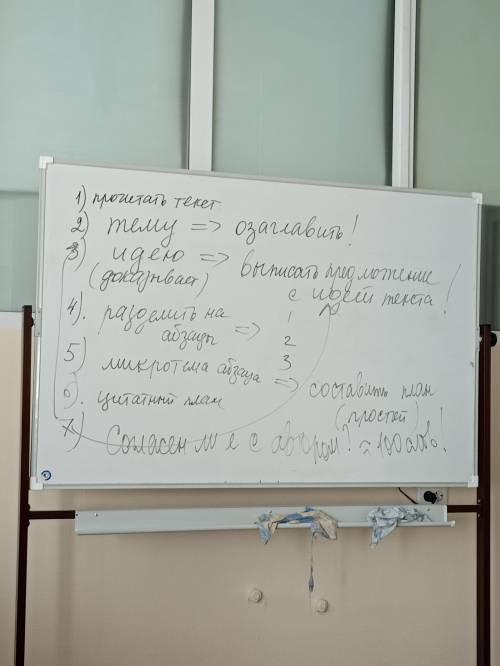 1) прочитать текст
2) тему => озаглавить!
3) идею => выписать предложение
(доказывает) с идеей текста!
4). разделить на 1
абзацы => 2
5) микротема абзаца 3
=> составить план
6). цитатный план (простой)
7) Согласен ли я с автором? ≈ 100 слов!